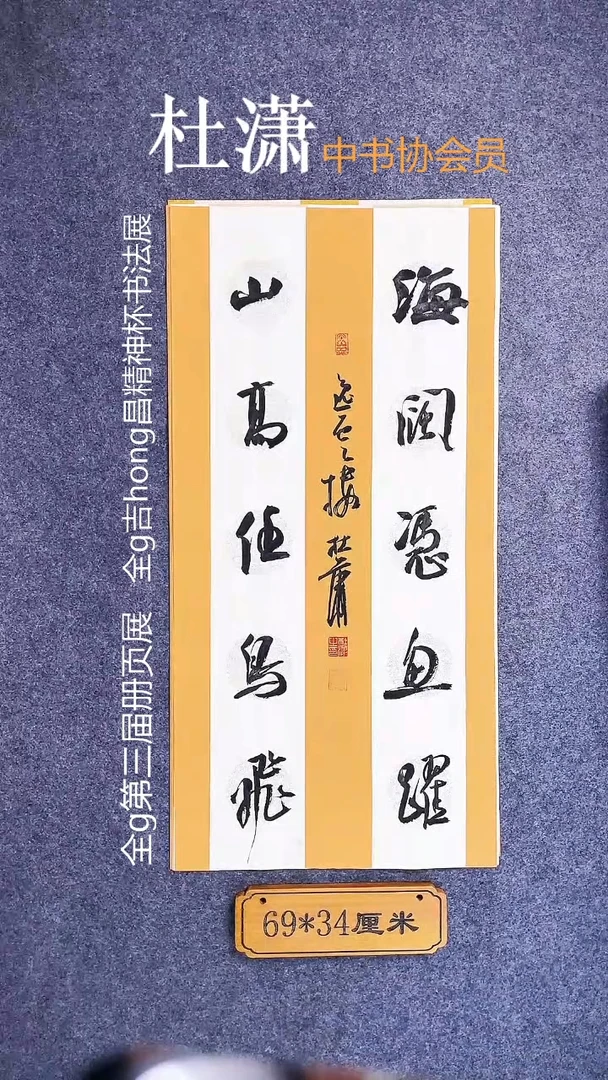 杜潇
中书协会员
全g吉hong昌精神杯书法展
全g第三届册页展
海阔凭鱼跃
山高任鸟飞
杜潇
69*34厘米